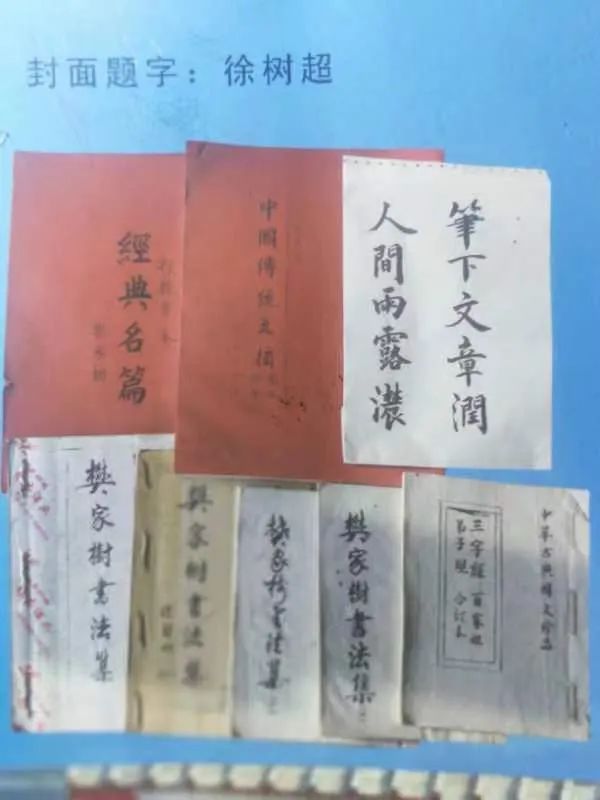 封面题字：徐树超
經典名篇
中國傳統文摘
筆下文章潤
人間雨露濃
樊家樹書法集
樊家樹書法集
樊家樹書法集
樊家樹書法集
中華古典傳文珍品
三字經 百家姓
弟子規 合订本